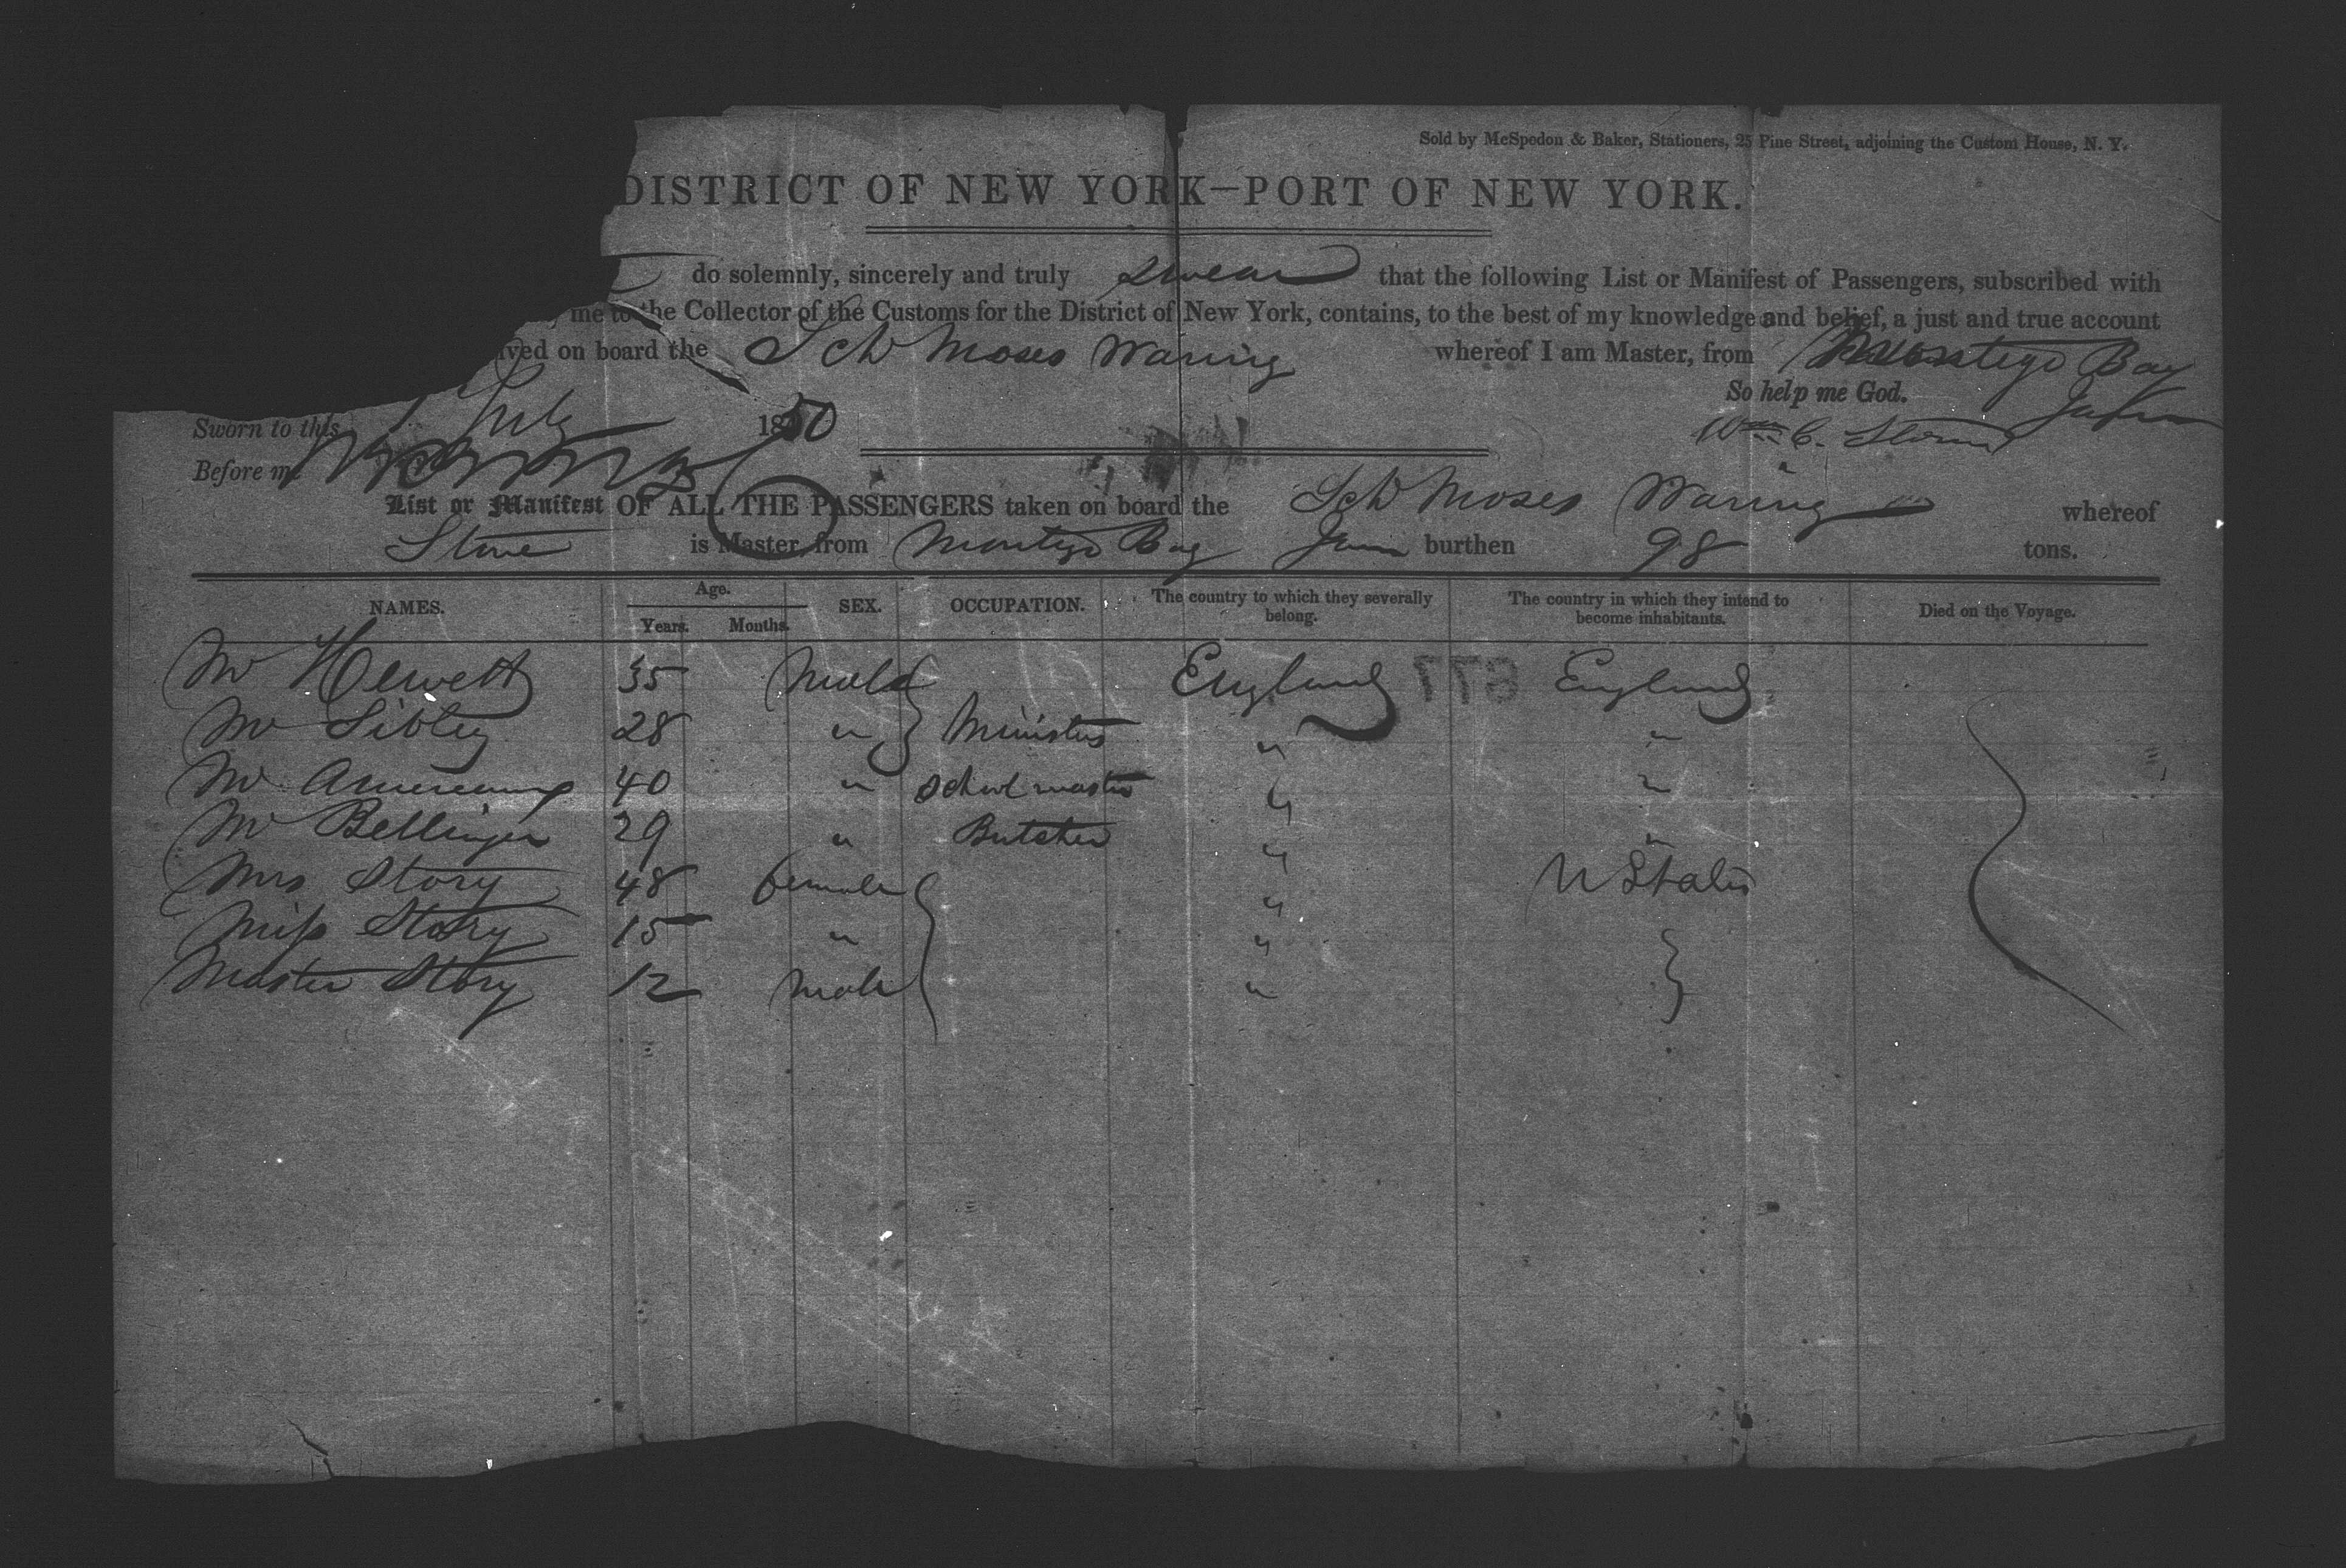 Sold by McSpedon & Baker, Stationers, 25 Pine Street, adjoining the Custom House, N. Y.
DISTRICT OF NEW YORK—PORT OF NEW YORK.
do solemnly, sincerely and truly swear that the following List or Manifest of Passengers, subscribed with
me to the Collector of the Customs for the District of New York, contains, to the best of my knowledge and belief, a just and true account
ived on board the Sch Moses Waring whereof I am Master, from Montego Bay
So help me God.
Sworn to this July 1850 Wm C.
Before me
List or Manifest OF ALL THE PASSENGERS taken on board the Sch Moses Waring whereof
is Master, from Montego Bay burthen 98 tons.
NAMES. Age. Years. Months. SEX. OCCUPATION. The country to which they severally belong. The country in which they intend to become inhabitants. Died on the Voyage.
Mr Hewett 35 Male England England
Mr Sibley 28 " Ministers " "
Mr 40 " School master " "
Mr Bellinger 29 " Butcher " "
Mrs Story 48 female " U States
Miss Story 15 " "
Master Story 12 Male "